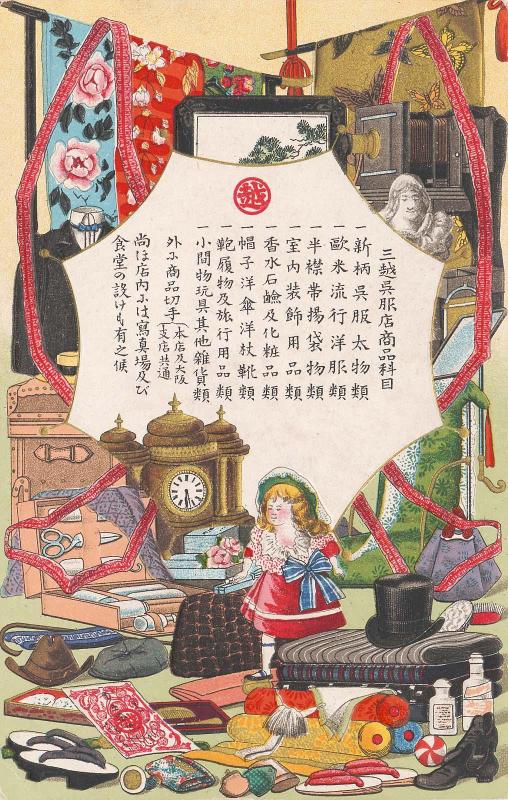 越
三越呉服店商品科目
一新柄呉服太物類
歐米流行洋服類
一半襟帯揚袋物類
一室内装飾用品類
一香水石鹸及化粧品類
一帽子洋傘洋杖靴類
一鞄履物及旅行用品類
一小間物玩具其他雑貨類
外ニ商品切手(本店及大阪支店共通)
尚ほ店内には寫真場及び
食堂の設けも有之候